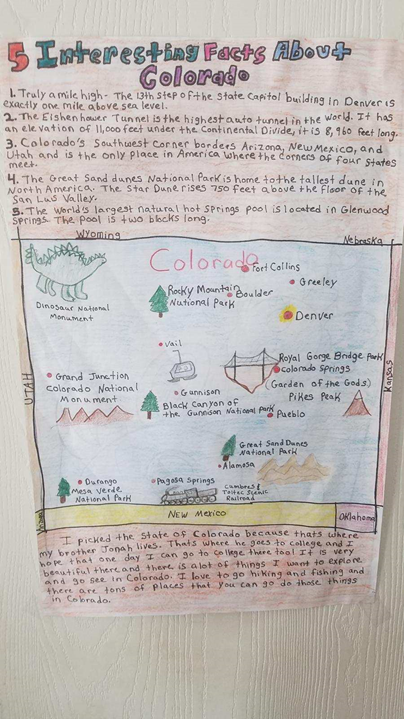 5 Interesting Facts About
Colorado
1. Truly a mile high - The 13th step of the State Capitol building in Denver is
exactly one mile above sea level.
2. The Eisenhower Tunnel is the highest auto tunnel in the world. It has
an elevation of 11,000 feet under the Continental Divide, it is 8,960 feet long.
3. Colorado's Southwest Corner borders Arizona, New Mexico, and
Utah and is the only place in America where the corners of four states
meet.
4. The Great Sand dunes National Park is home to the tallest dune in
North America. The Star Dune rises 750 feet above the floor of the
San Luis Valley.
5. The World's largest natural hot springs pool is located in Glenwood
Springs. The pool is two blocks long.
Wyoming
Nebraska
Colorado
Fort Collins
Greeley
Rocky Mountain
National Park
Boulder
Dinosaur National
Monument
Denver
Vail
Royal Gorge Bridge Park
Colorado Springs
(Garden of the Gods)
Pikes Peak
UTAH
Kansas
Grand Junction
Colorado National
Monument
Gunnison
Black Canyon of
the Gunnison National park
Pueblo
Great Sand Dunes
National Park
Alamosa
Durango
Mesa Verde
National Park
Pagosa Springs
Cumbres &
Toltec Scenic
Railroad
New Mexico
Oklahoma
I picked the state of Colorado because thats where
my brother Jonah lives. Thats where he goes to college and I
hope that one day I can go to college there too! It is very
beautiful there and there is alot of things I want to explore
and go see in Colorado. I love to go hiking and fishing and
there are tons of places that you can go do those things
in Colorado.